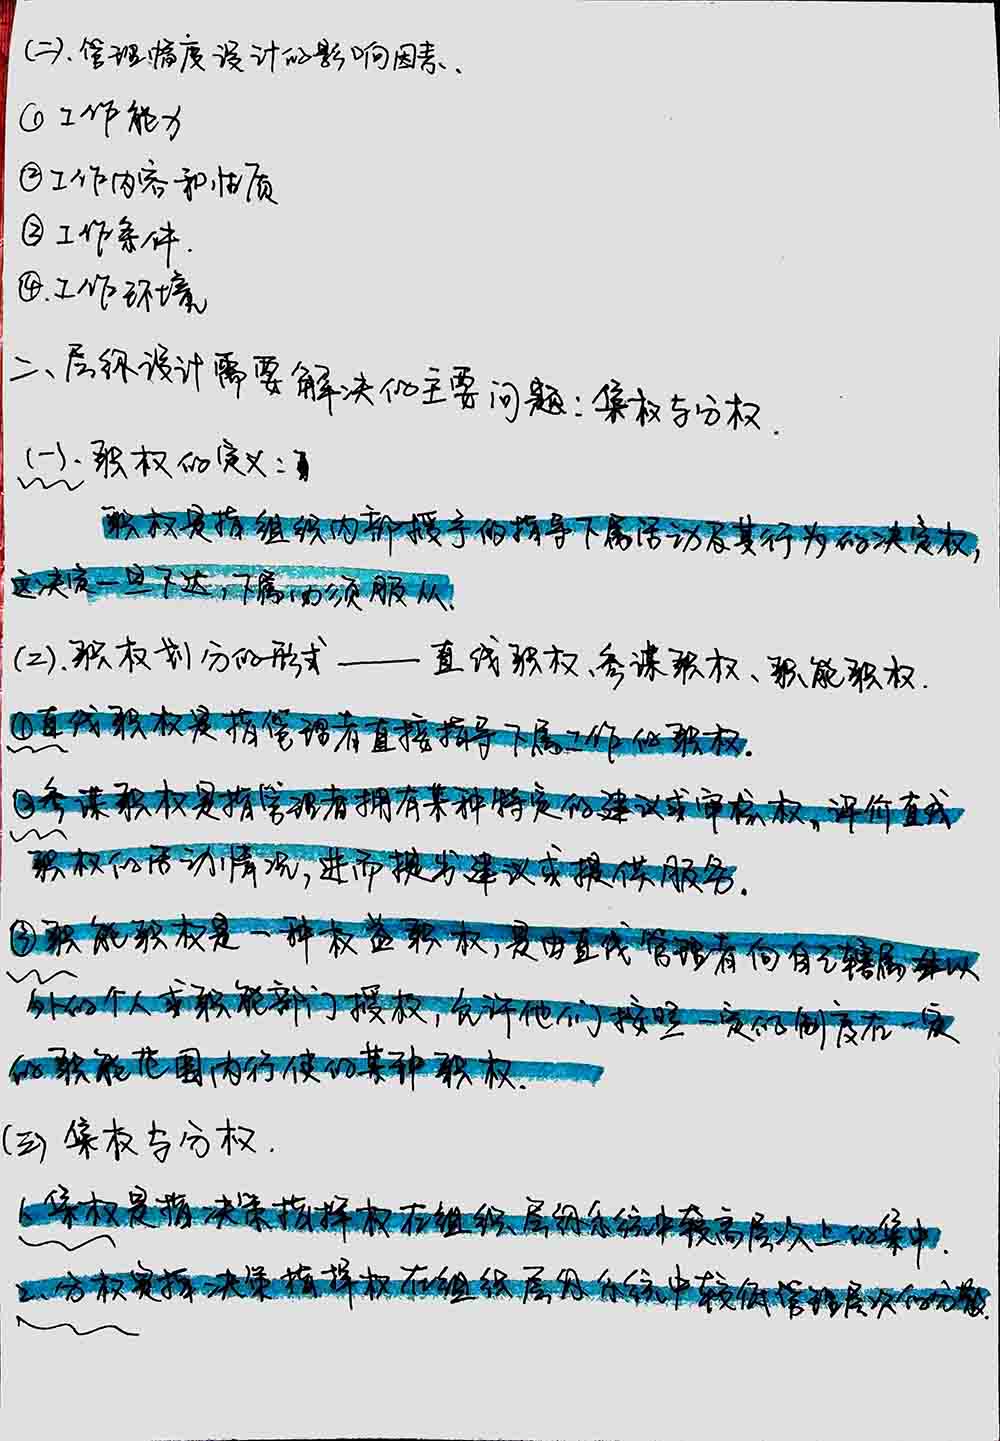 (二).管理幅度设计的影响因素、
① 工作能力
②工作内容和性质
③ 工作条件.
④.工作环境
二、层级设计需要解决的主要问题:集权与分权.
(一).职权的定义:
职权是指组织内部授予的指导下属活动及其行为的决定权,
这决定一旦下达,下属必须服从.
(二).职权划分的形式——直线职权、参谋职权、职能职权.
①直线职权是指管理者直接指导下属工作的职权.
②参谋职权是指管理者拥有某种特定的建议或审核权,评价直线
职权的活动情况,进而提出建议或提供服务.
③职能职权是一种权益职权,是由直线管理者向自己辖属以
外的个人或职能部门授权,允许他们按照一定的制度在一定
的职能范围内行使的某种职权.
(三) 集权与分权.
1.集权是指决策指挥权在组织层级系统中较高层次上的集中.
2.分权是指决策指挥权在组织层级系统中较低管理层次的分散.